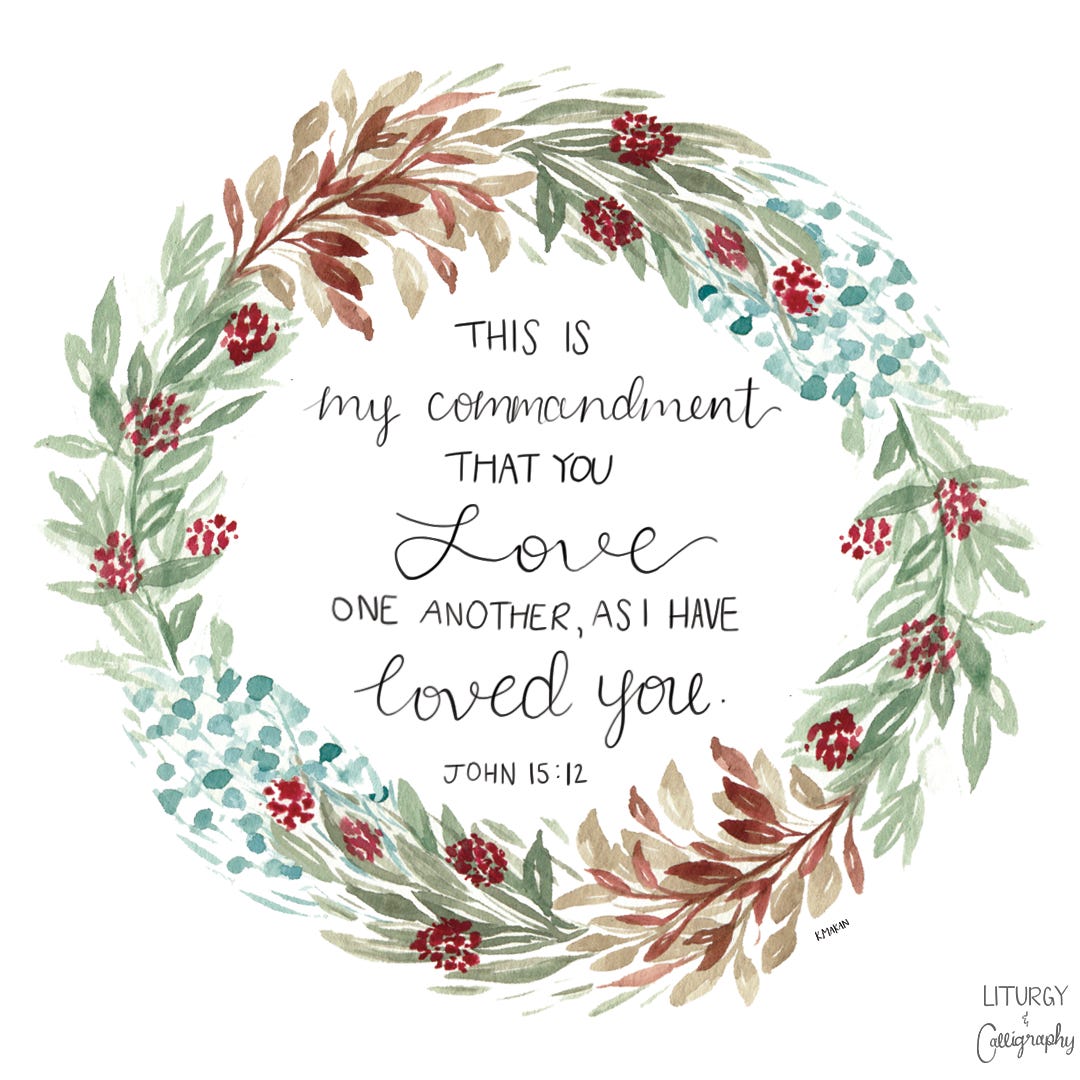 THIS IS
my commandment
THAT YOU
Love
ONE ANOTHER, AS I HAVE
loved you.
JOHN 15:12
K.MAKAN
LITURGY
&
Calligraphy